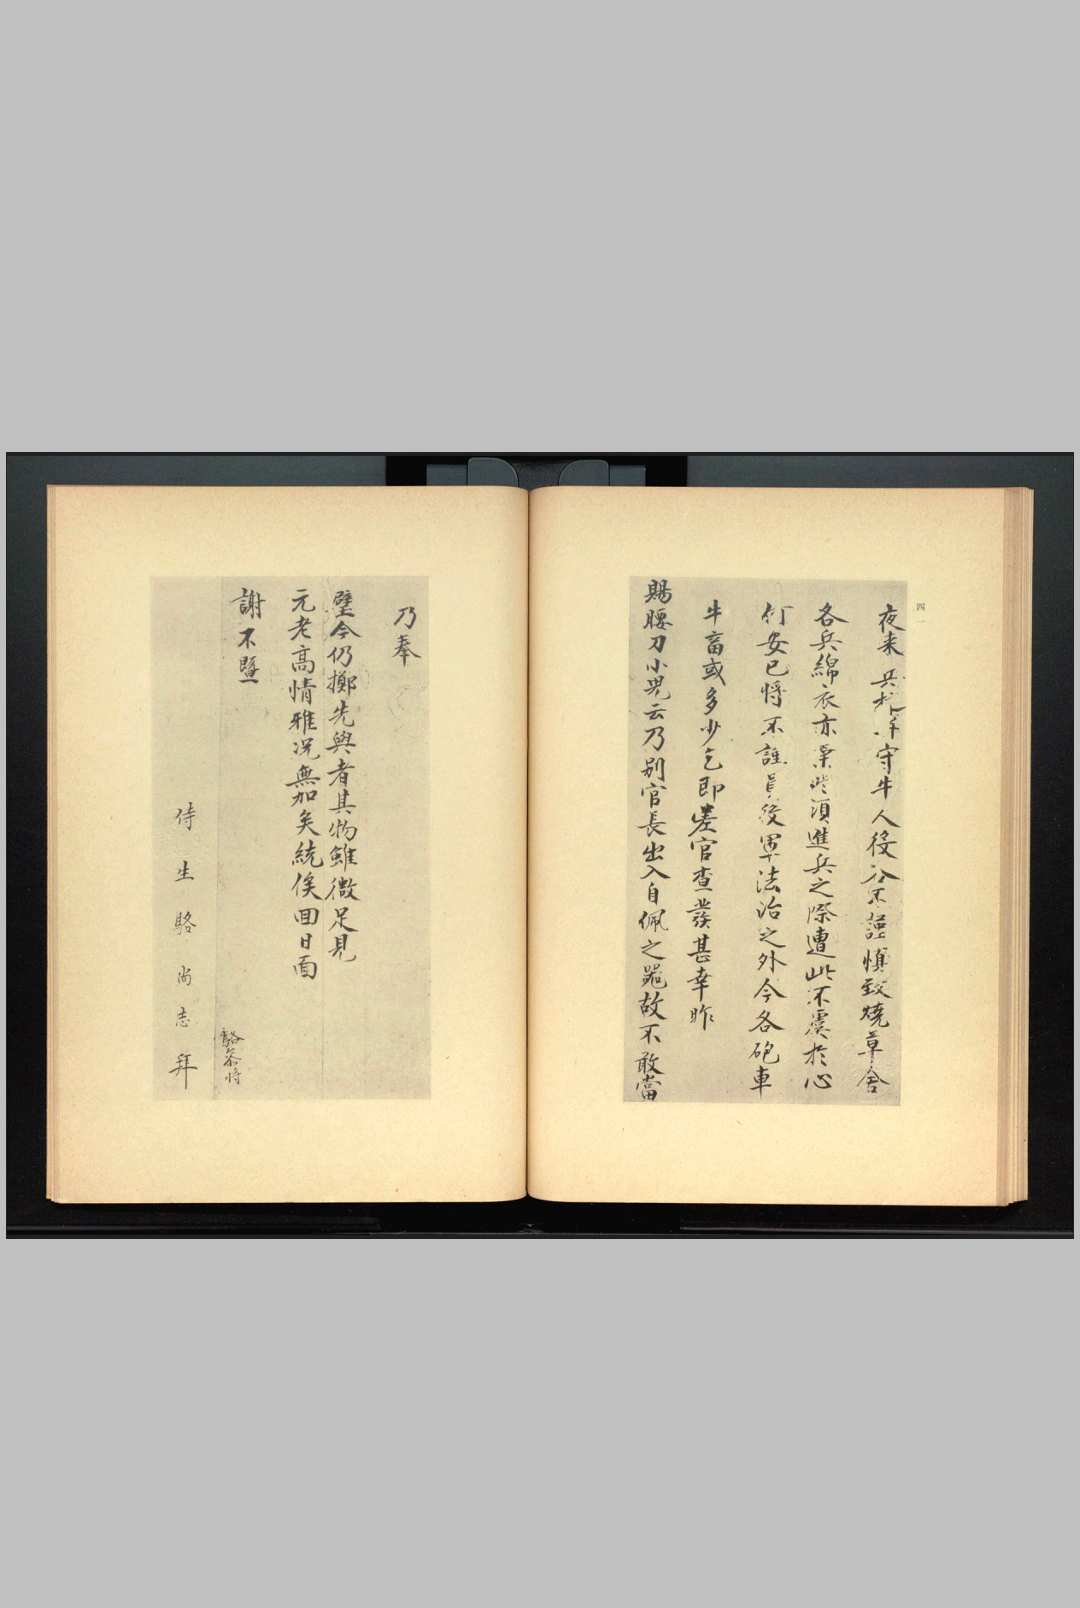 四一
夜来兵札牛守牛人役不謹慎致燒草舍
各兵綿衣亦棄些須進兵之際遭此不虞於心
何安已將不謹員役軍法治之外今各砲車
牛畜或多少乞即差官查發甚幸昨
賜腰刀小児云乃别官長出入自佩之器故不敢當
乃奉
璧今仍擲先與者其物雖微足見
元老高情雅况無加矣統俟囬日面
謝不曁
侍生駱尚志拜
駱叅将